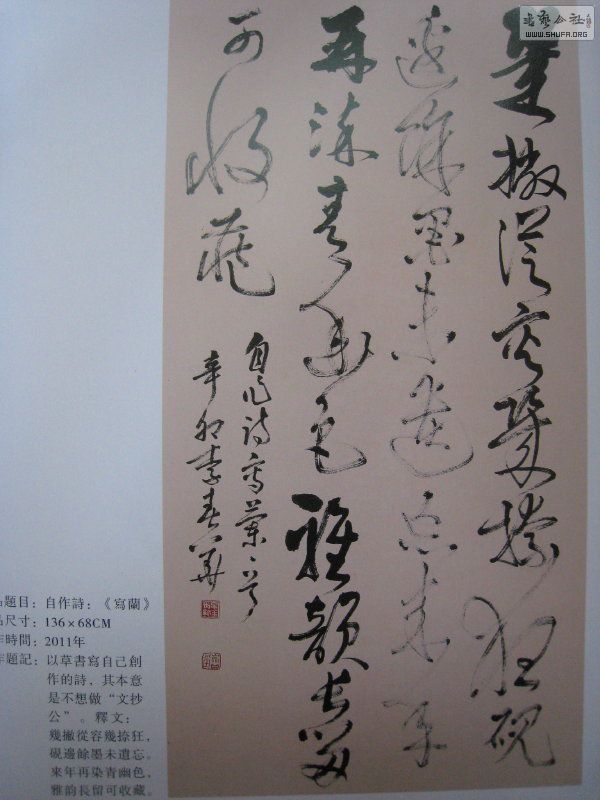 幾撇從容幾捺狂硯
邊餘墨未遺忘來年
再染青幽色雅韻長留
可收藏
自作詩寫蘭一首
辛卯李春華
品題目：自作詩：《寫蘭》
品尺寸：136×68CM
作時間：2011年
作題記：以草書寫自己創
作的詩，其本意
是不想做“文抄
公”。釋文：
幾撇從容幾捺狂，
硯邊餘墨未遺忘。
來年再染青幽色，
雅韻長留可收藏。
WWW.SHUFA.ORG